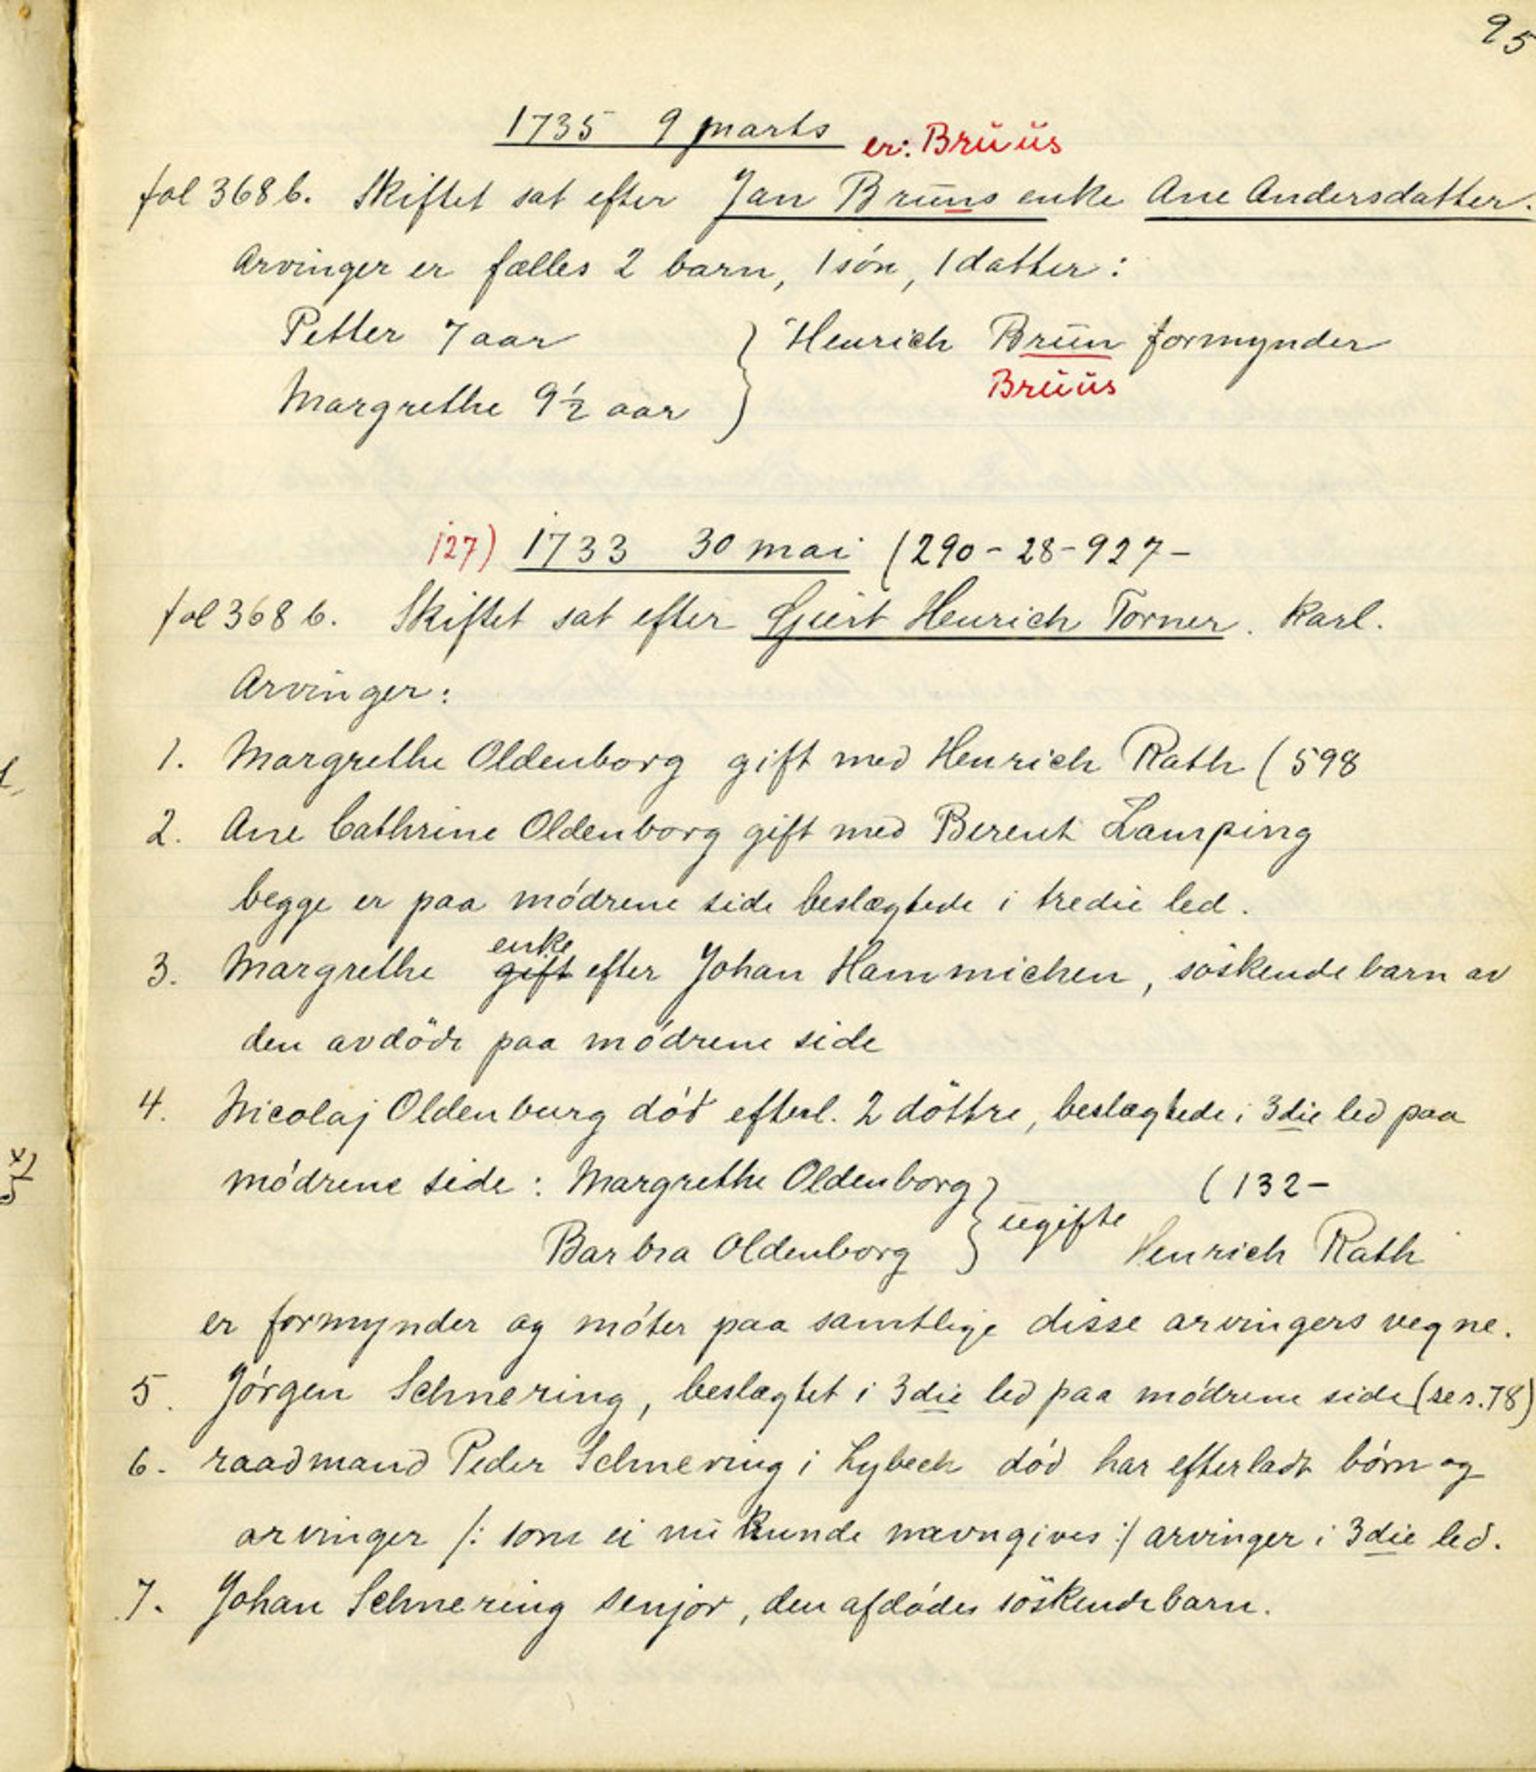 95
1735 9 marts er: Brüüs
fol 368 b. Skiftet sat efter Jan Brüns enke Ane Andersdatter.
Arvinger er fælles 2 barn, 1 sön, 1 datter:
Petter 7 aar } Henrich Brün formynder
Margrethe 9½ aar Brüüs
127) 1733 30 mai (290-28-927-
fol 368 b. Skiftet sat efter Gjert Henrich Torner. Karl.
Arvinger:
1. Margrethe Oldenborg gift med Henrich Rath (598
2. Ane Cathrine Oldenborg gift med Berent Lamping
begge er paa módrene side beslægtede i tredie led.
enke
3. Margrethe gift efter Johan Hammichen, söskendebarn av
den avdöde paa módrene side
4. Nicolaj Oldenburg död efterl. 2 döttre, beslægtede i 3die led paa
módrene side: Margrethe Oldenborg } ugifte (132-
Barbra Oldenborg Henrich Rath
er formynder og móter paa samtlige disse arvingers vegne.
5. Jórgen Schnering, beslægtet i 3die led paa módrene side (se s. 78)
6. raadmand Peder Schnering i Lybech död har efterladt bórn og
arvinger /: som ei nü kunde navngives :/ arvinger i 3die led.
7. Johan Schnering senjor, den afdódes söskendebarn.